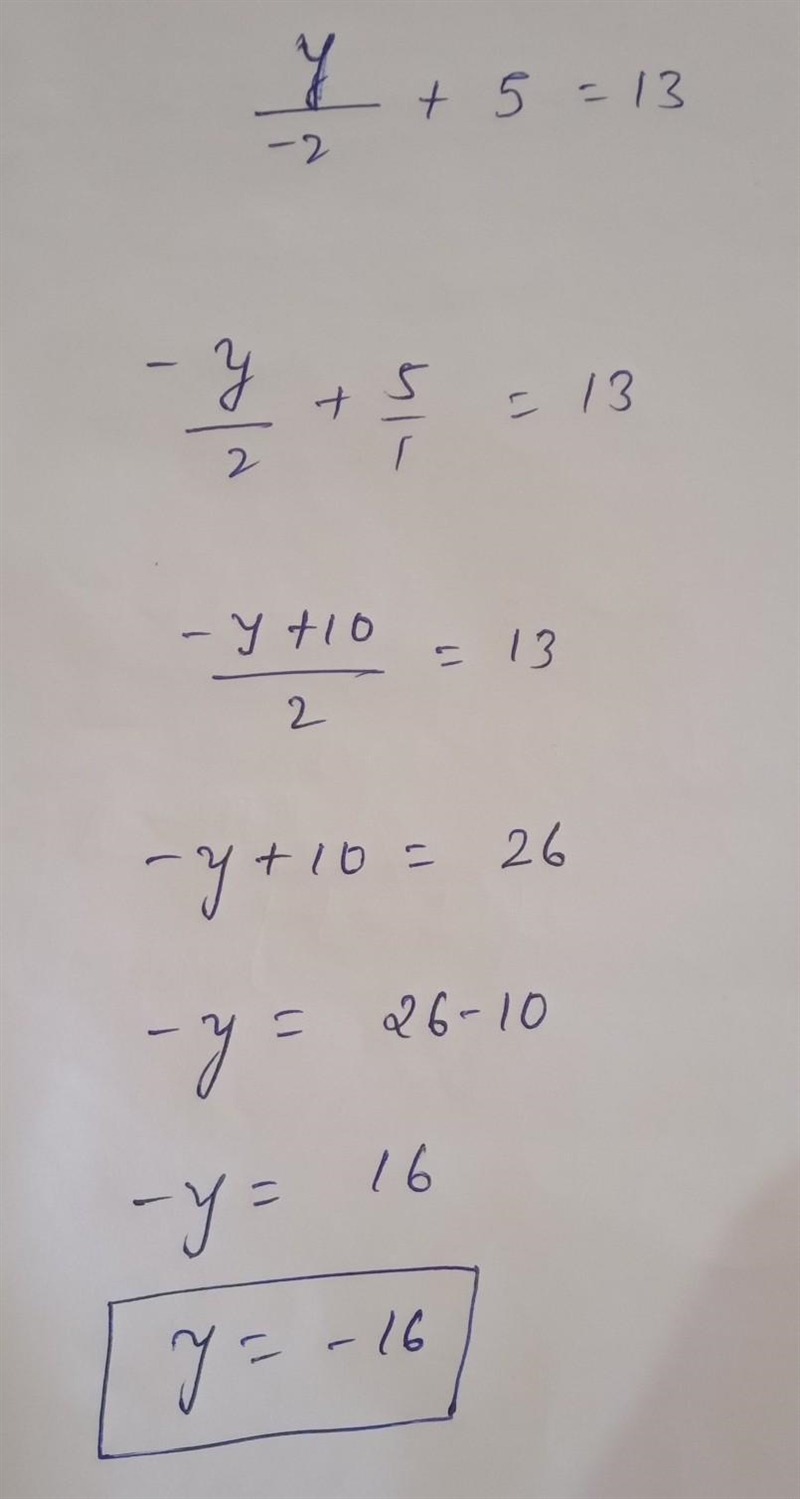 y/-2 + 5 = 13
-y/2 + 5/1 = 13
(-y+10)/2 = 13
-y+10 = 26
-y = 26-10
-y = 16
y = -16